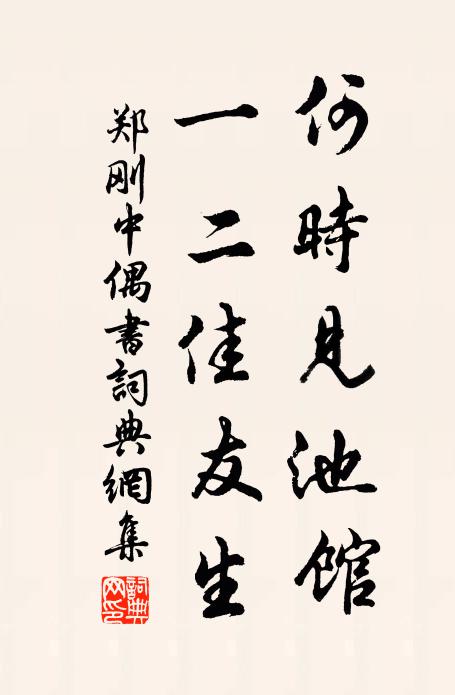 何時見池館
一二佳友生
郑刚中偶書詞典網集
詞典網印